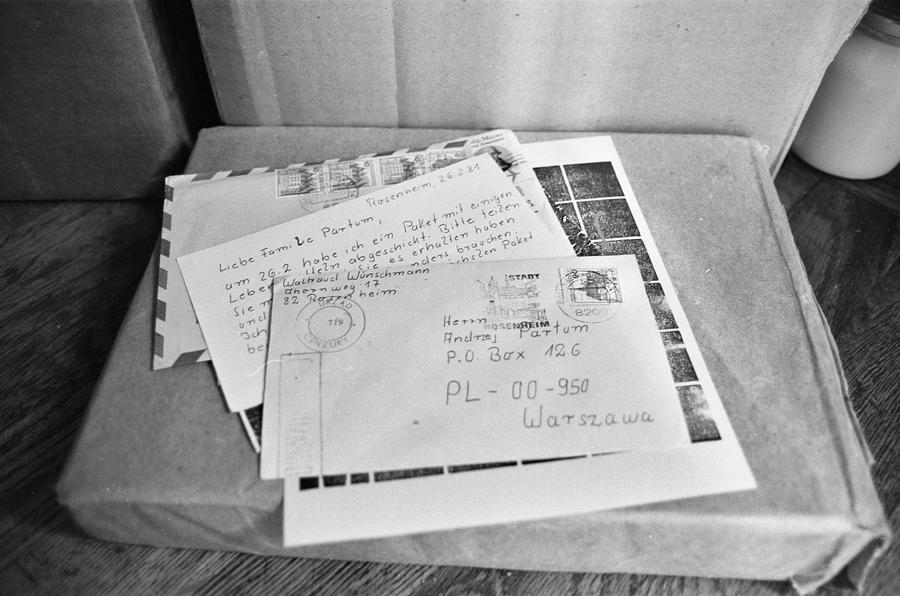 Rosenheim, 26.2.81
Liebe Familie Partum,
am 26.2 habe ich ein Paket mit einigen
abgeschickt. Bitte teilen
es erhalten haben
anders brauchen.
Paket
Sie
und
Ich
be
Waltraud Wünschmann
Ahornweg 17
82 Rosenheim
URZĄD
CENZURY
STADT
ROSENHEIM
8200
Herrn
Andrzej Partum
P.O. Box 126
PL-00-950
Warszawa